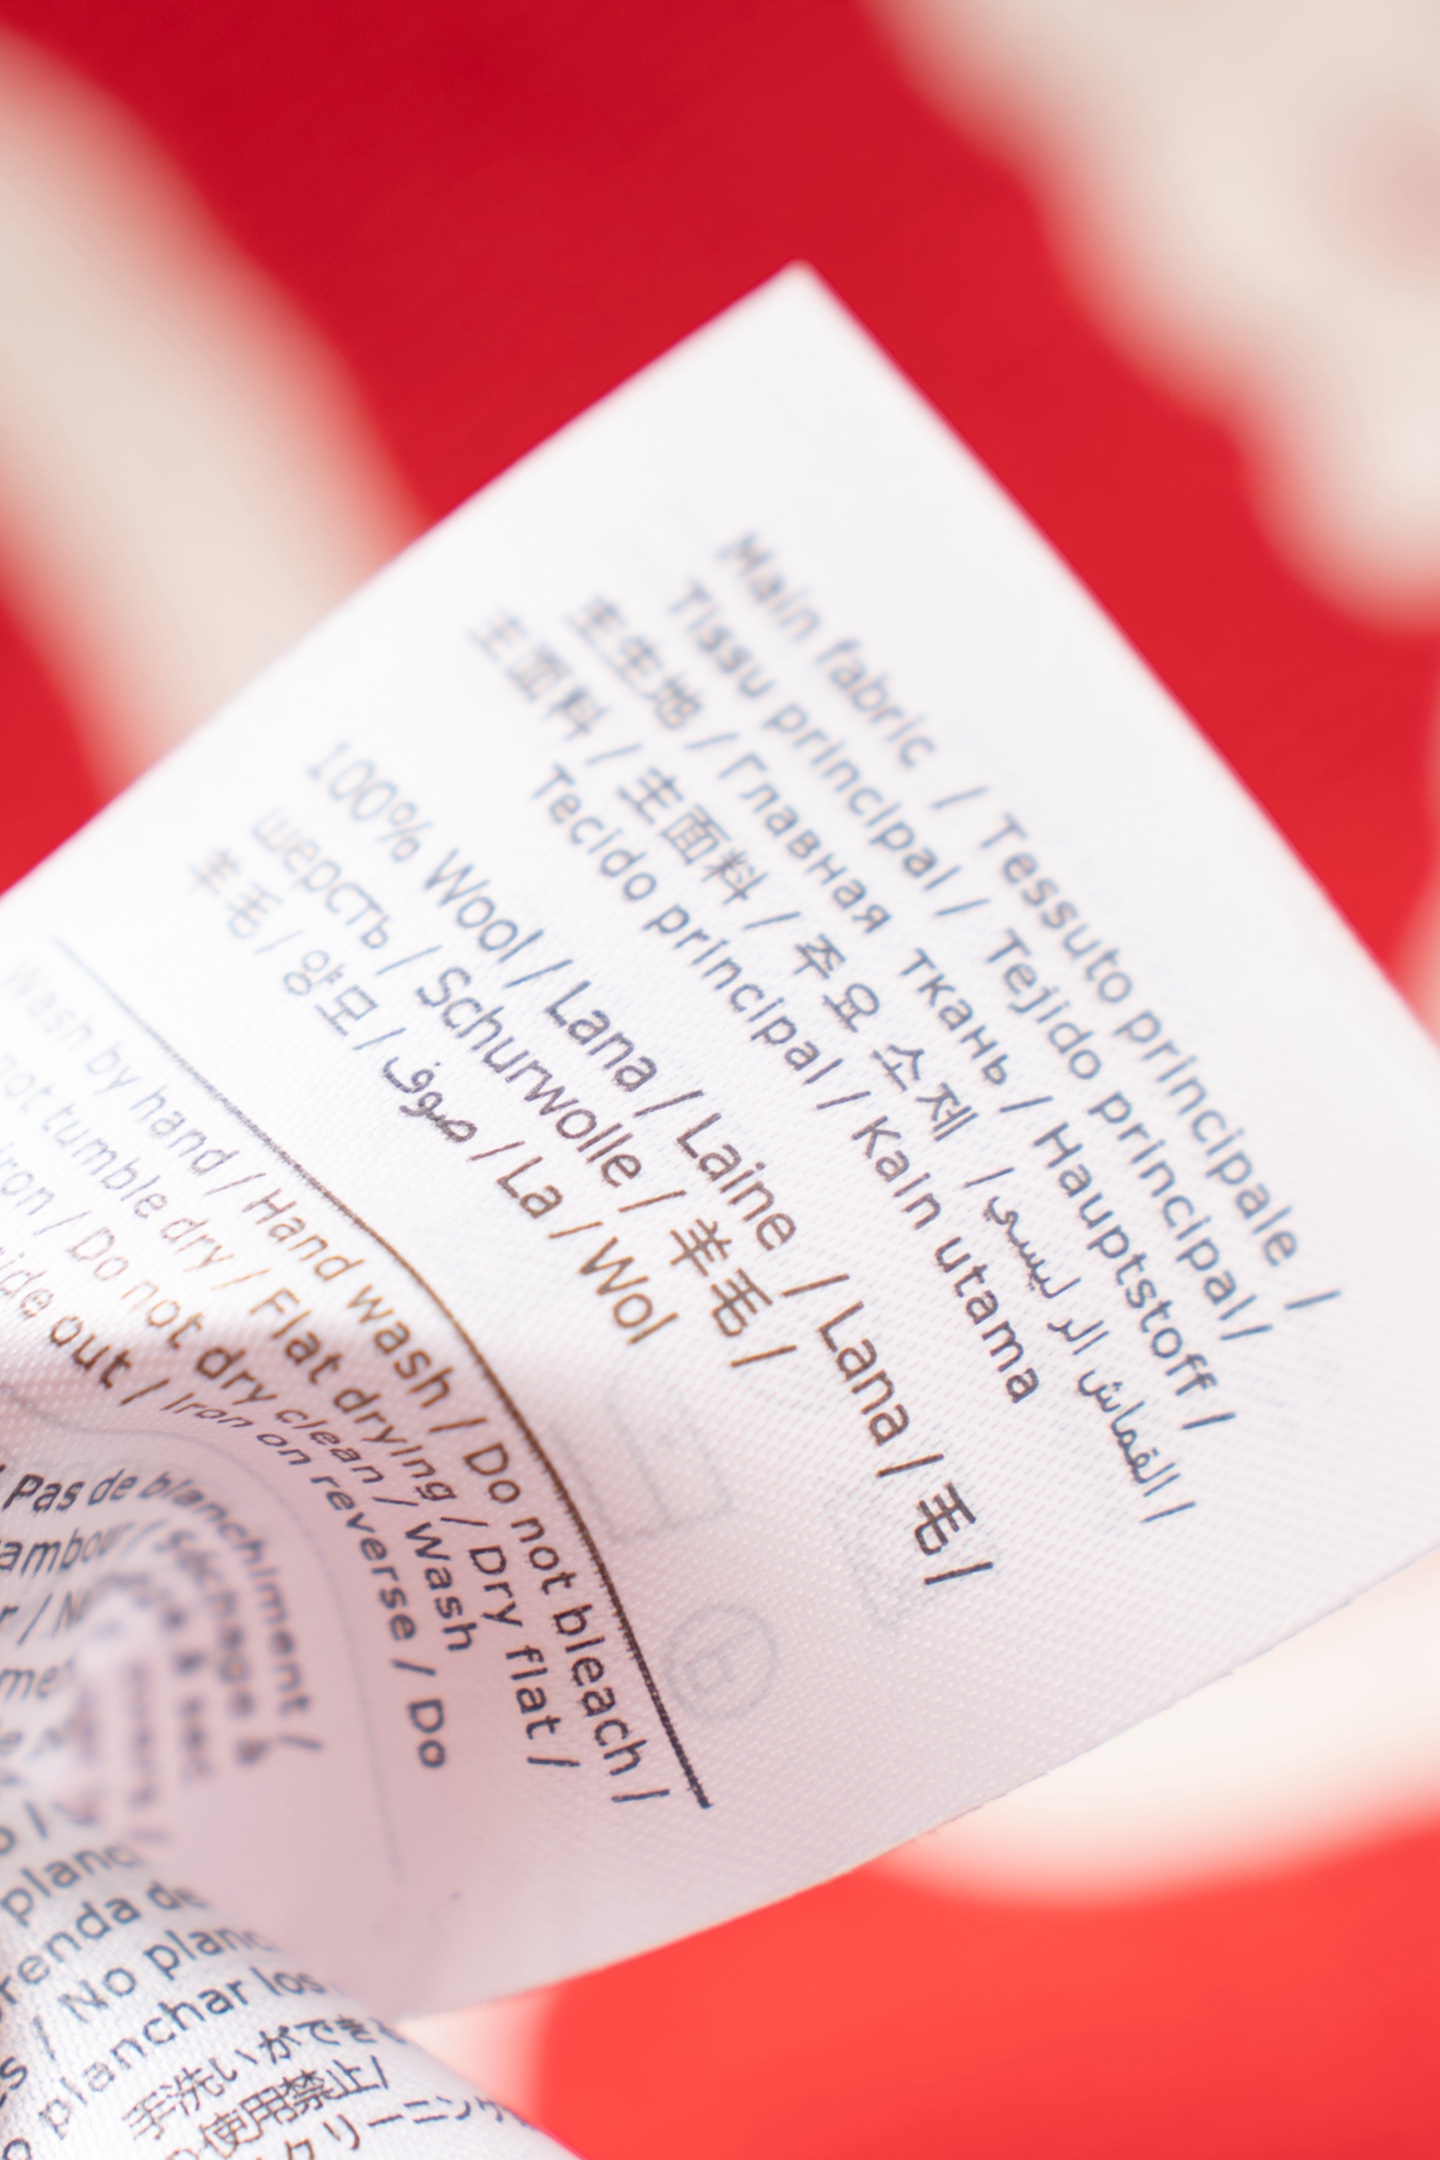 Main fabric / Tessuto principale /
Tissu principal / Tejido principal/
主生地 / Главная ткань / Hauptstoff /
主面料 / 主面料 / 주요 소재 / القماش الر ليسي /
Tecido principal / Kain utama
100% Wool / Lana / Laine / Lana / 毛 /
шерсть / Schurwolle / 羊毛 /
羊毛 / 양모 / صوف / La / Wol
Wash by hand / Hand wash / Do not bleach /
not tumble dry / Flat drying / Dry flat /
iron / Do not dry clean / Wash
out / Iron on reverse / Do
Pas de blanchiment /
Séchage à
No planc
planchar los
手洗いができ
使用禁止/
クリーニング